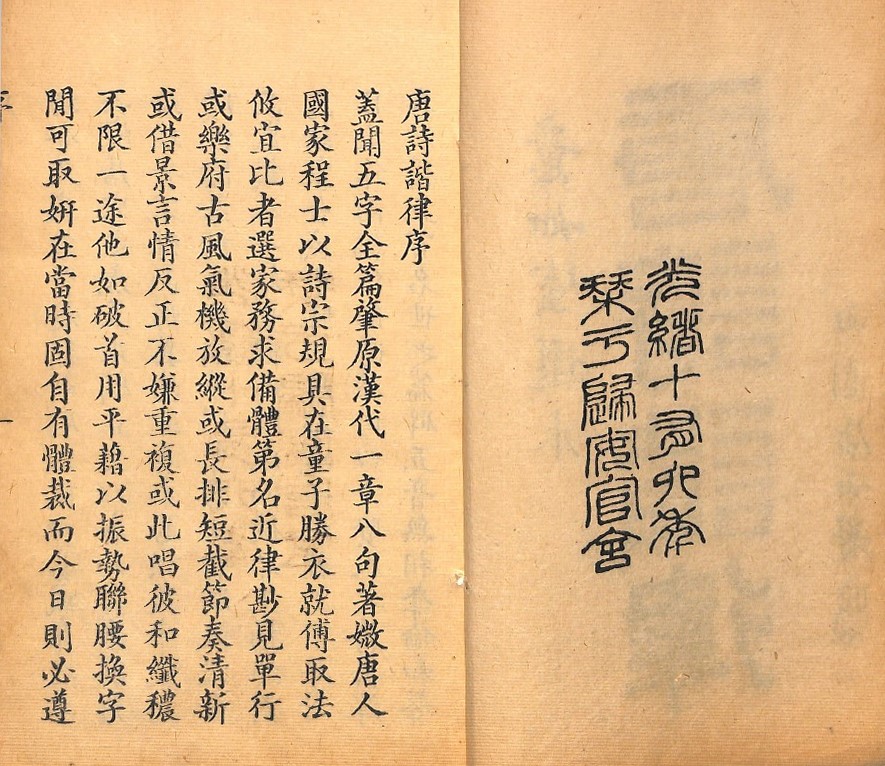 光緒十有六年
栞于歸安官舍
唐詩諧律序
蓋聞五字全篇肇原漢代一章八句著媺唐人
國家程士以詩宗規具在童子勝衣就傅取法
攸宜比者選家務求備體第名近律尠見單行
或樂府古風氣機放縱或長排短截節奏清新
或借景言情反正不嫌重複或此唱彼和纖穠
不限一途他如破首用平藉以振勢聯腰換字
閒可取姸在當時固自有體裁而今日則必遵